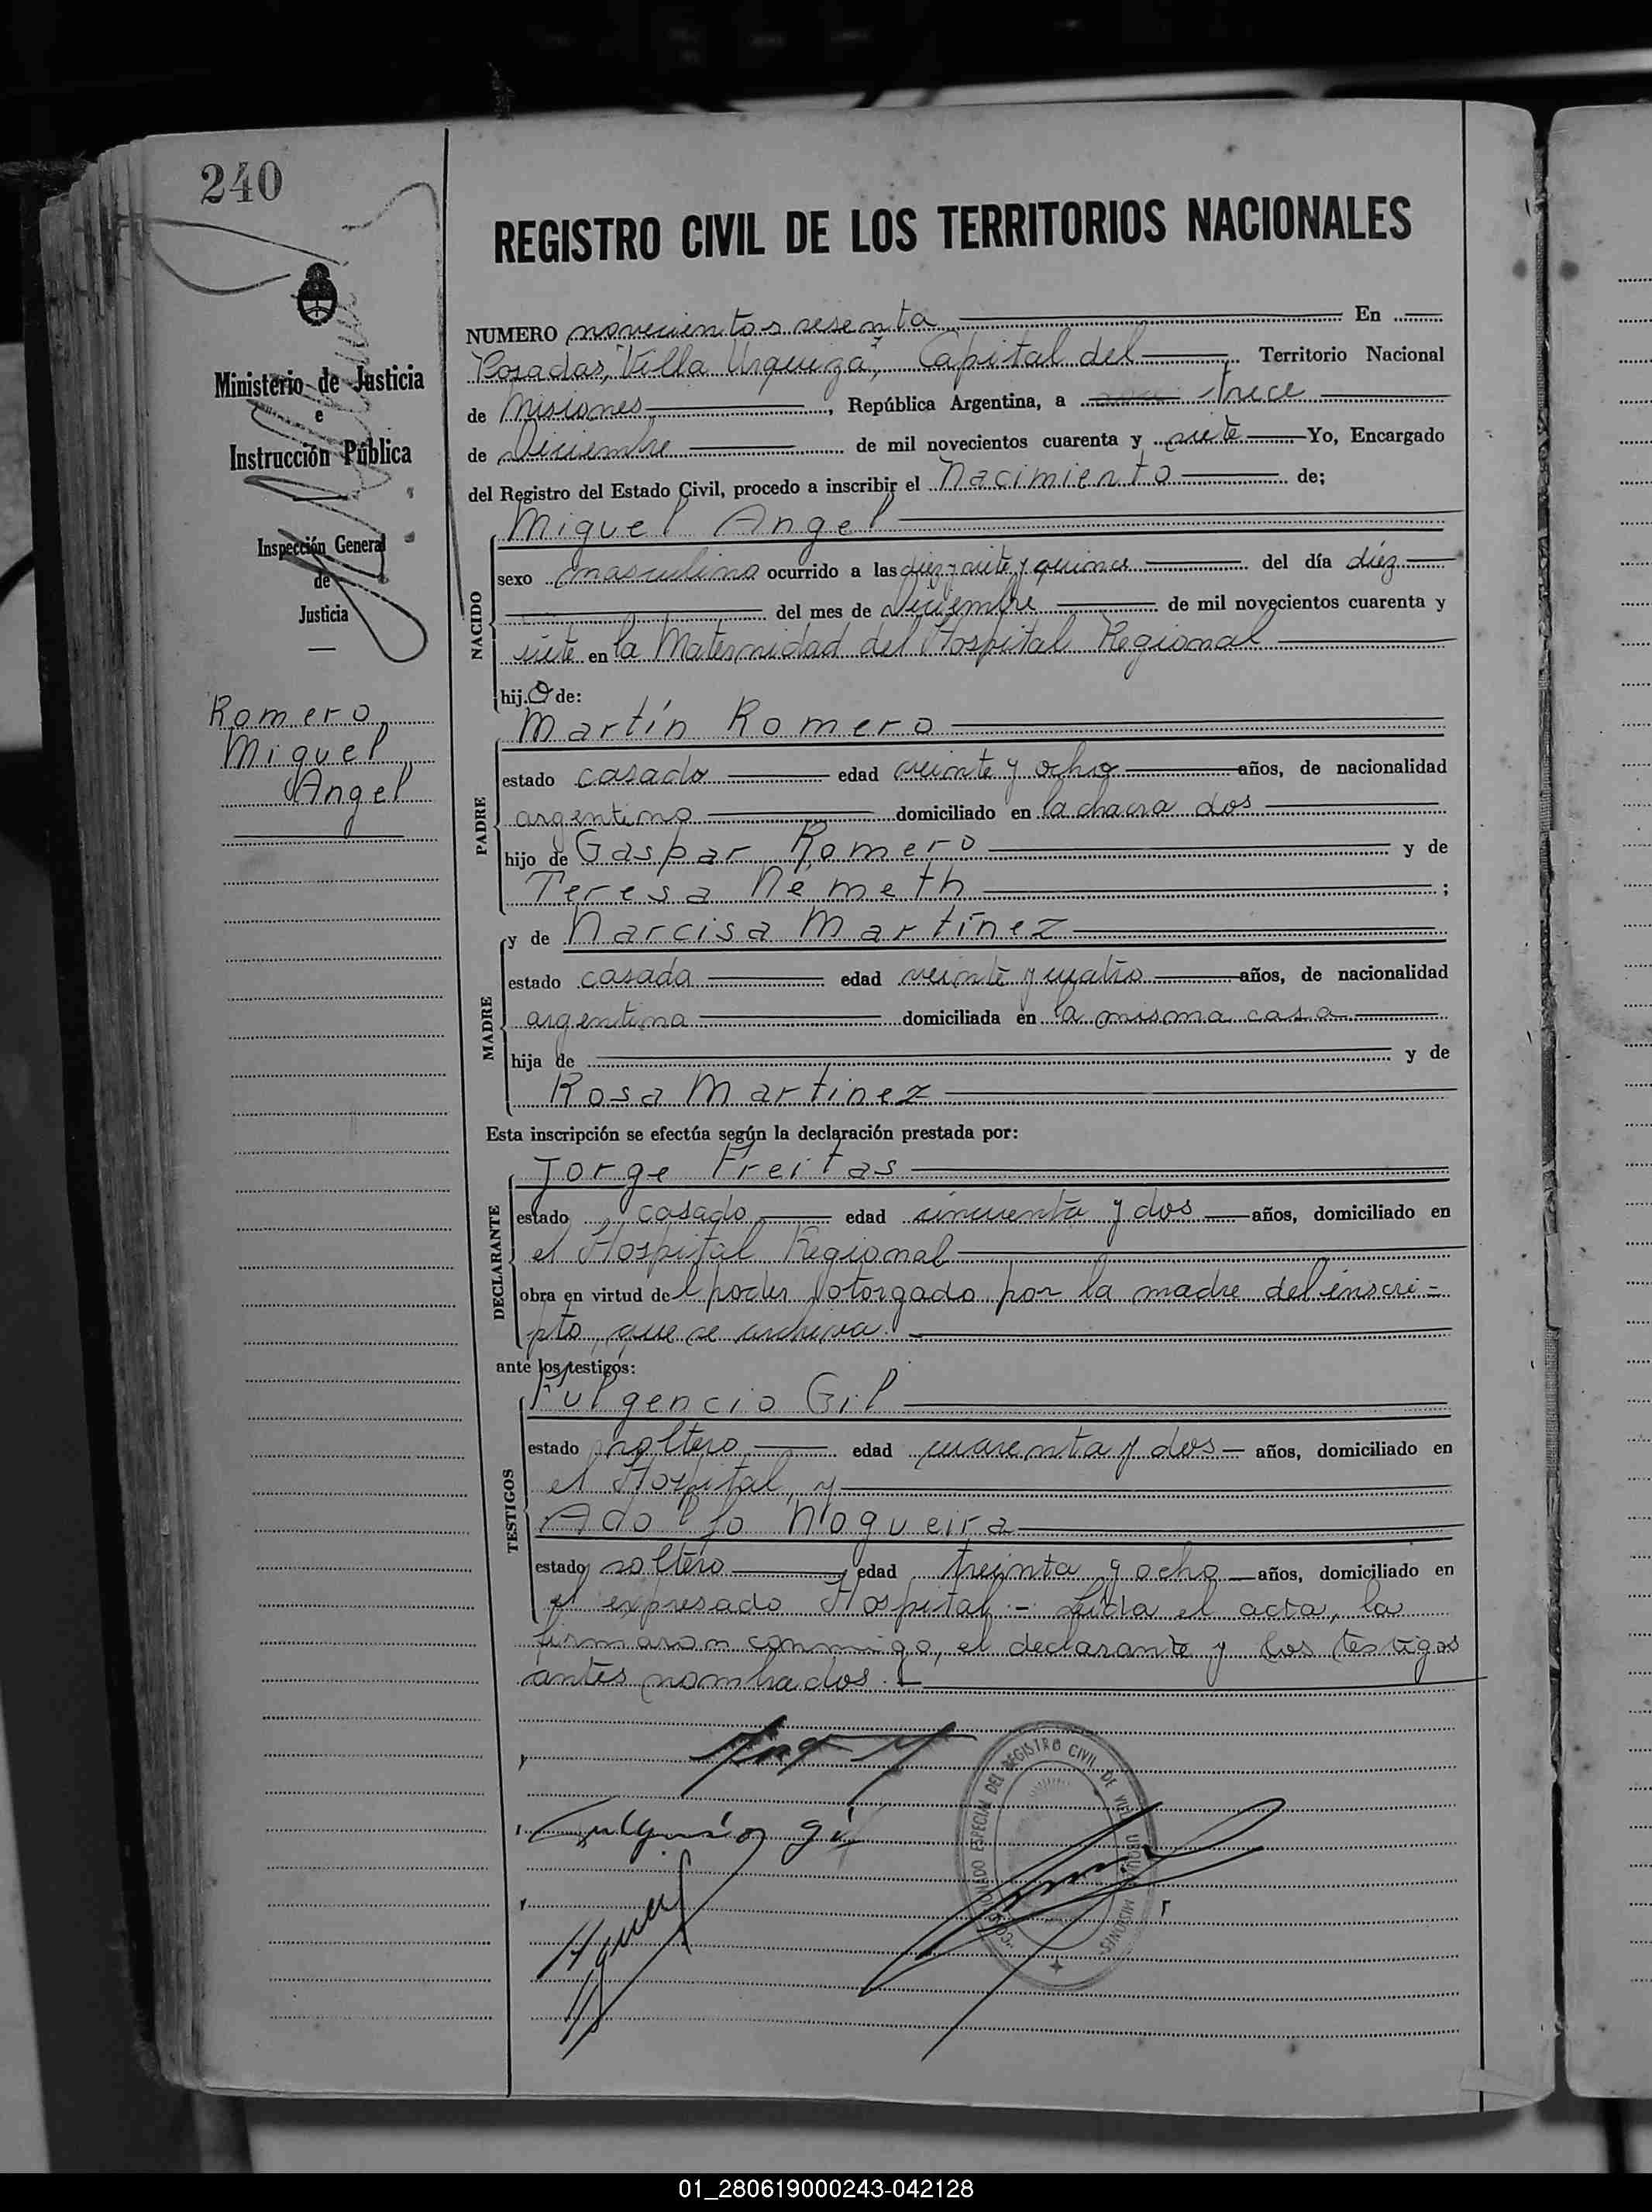 240
REGISTRO CIVIL DE LOS TERRITORIOS NACIONALES
Ministerio de Justicia
e
Instrucción Pública
Inspección General
de
Justicia
Romero
Miguel
Angel
NUMERO novecientos sesenta En
Posadas, "Villa Urquiza", Capital del Territorio Nacional
de Misiones, República Argentina, a trece
de Diciembre de mil novecientos cuarenta y siete Yo, Encargado
del Registro del Estado Civil, procedo a inscribir el Nacimiento de;
NACIDO
Miguel Angel
sexo masculino ocurrido a las diez y siete y quince del día diéz
del mes de Diciembre de mil novecientos cuarenta y
siete en la Maternidad del Hospital Regional
hij.o de:
PADRE
Martín Romero
estado casado edad veinte y ocho años, de nacionalidad
argentino domiciliado en la chacra dos
hijo de Gaspar Romero y de
Teresa Németh ;
MADRE
y de Narcisa Martínez
estado casada edad veinte y cuatro años, de nacionalidad
argentina domiciliada en la misma casa
hija de y de
Rosa Martinez
Esta inscripción se efectúa según la declaración prestada por:
DECLARANTE
Jorge Freitas
estado casado edad cincuenta y dos años, domiciliado en
el Hospital Regional
obra en virtud del poder otorgado por la madre del inscri=
pto, que se archiva.
ante los testigos:
TESTIGOS
Fulgencio Gil
estado soltero edad cuarenta y dos años, domiciliado en
el Hospital, y
Adolfo Nogueira
estado soltero edad treinta y ocho años, domiciliado en
el expresado Hospital.- Leída el acta, la
firmaron conmigo, el declarante y los testigos
antes nombrados.
Fulgencio Gil
COMISIONADO ESPECIAL DEL REGISTRO CIVIL DE VILLA URQUIZA MISIONES
01_280619000243-042128